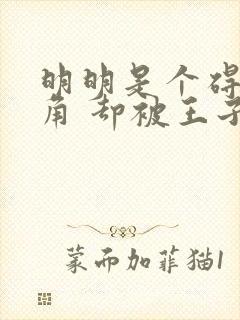 明明是个碍
角 却被王子
蒙而加菲猫1